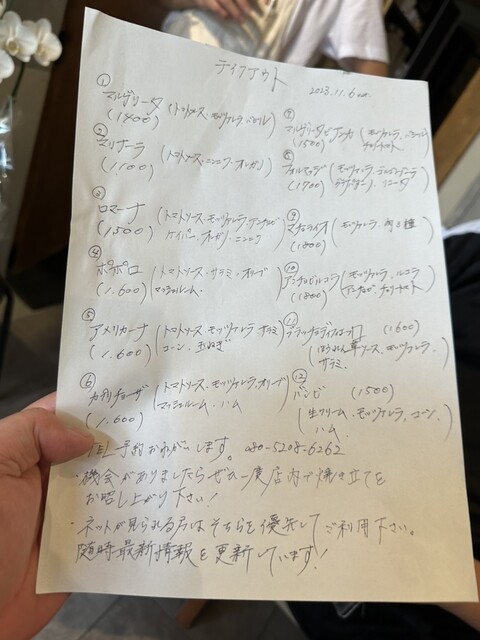 テイクアウト
2023.11.6
① マルゲリータ (トマトソース、モッツァレラ、バジル)
(1400)
② マリナーラ (トマトソース・ニンニク・オレガノ)
(1100)
③ ロマーナ (トマトソース・モッツァレラ・アンチョビ
(1500) ケイパー・オレガノ・ニンニク)
④ ポポロ (トマトソース・サラミ・オリーブ
(1.600) マッシュルーム.)
⑤ アメリカーナ (トマトソース・モッツァレラ・サラミ
(1.600) コーン・玉ねぎ)
⑥ カプリチョーザ (トマトソース・モッツァレラ・オリーブ
(1.600) マッシュルーム・ハム)
⑦ マルゲリータビアンカ (モッツァレラ、バジル
(1500) チェリートマト)
⑧ フォルマッジ (モッツァレラ、ゴルゴンゾーラ
(1700) リコッタ)
⑨ (モッツァレラ、
(1800)
⑩ アンチョビルコラ (モッツァレラ、ルコラ
(1800) アンチョビ、チェリートマト)
⑪ (1600)
(ほうれん草ソース、モッツァレラ、
サラミ.)
⑫ バンビ (1500)
(生クリーム・モッツァレラ、コーン、
ハム.)
・TEL予約おねがいします。 080-5208-6262
・機会がありましたらぜひ一度店内で焼き立てを
お召し上がり下さい!
・ネットが見られる方はそちらを優先してご利用下さい。
随時最新情報を更新しています!